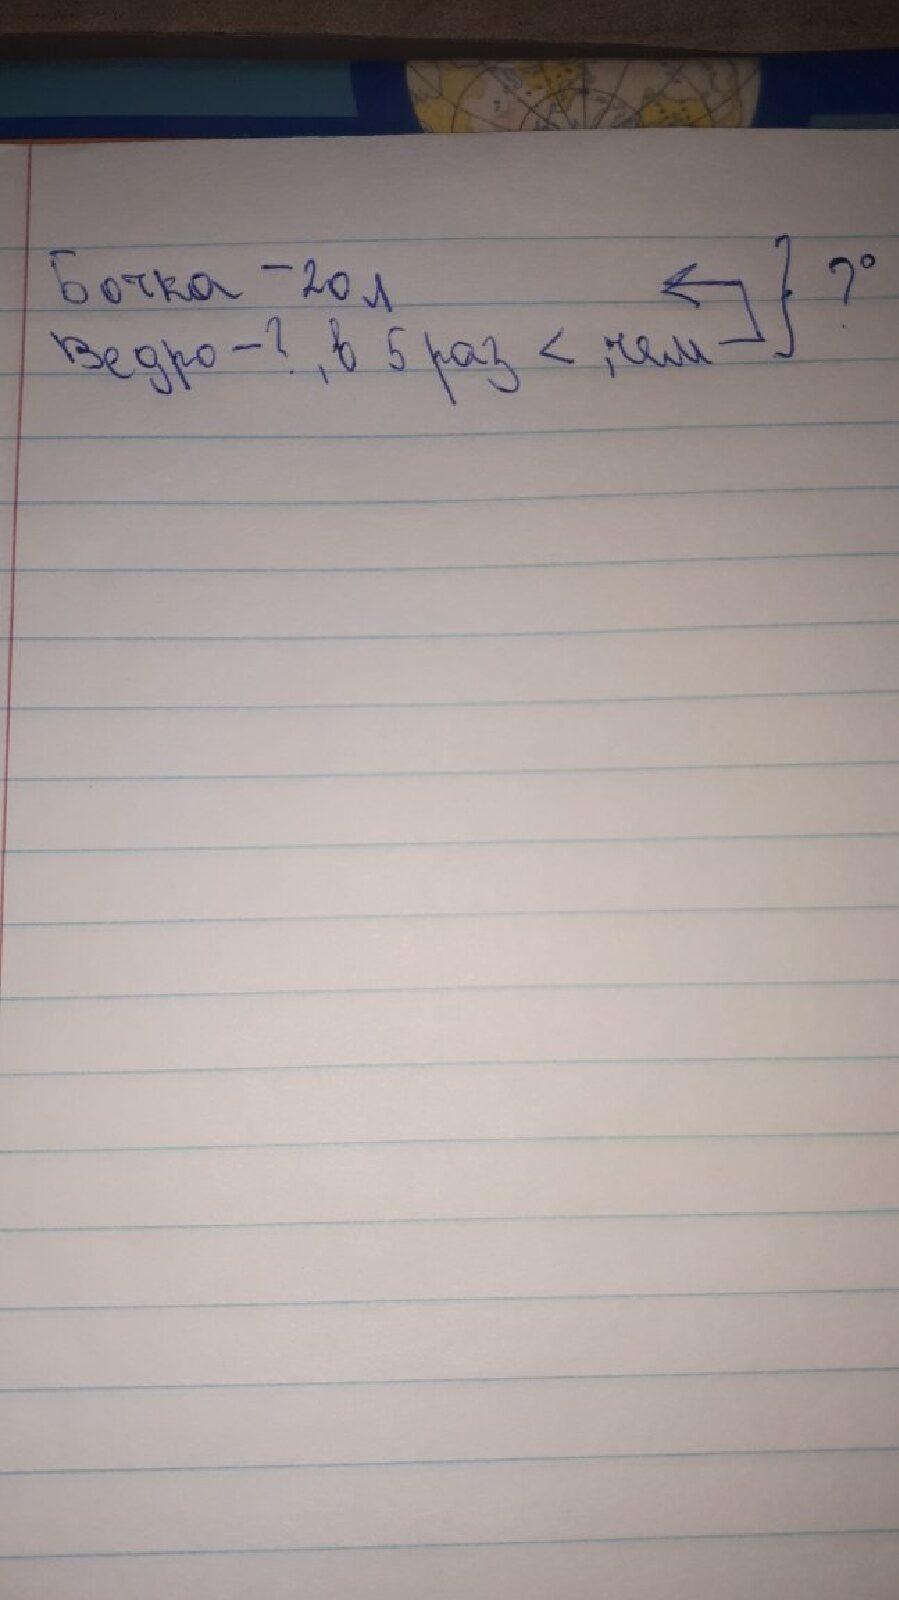 Бочка - 20 л
Ведро - ?, в 5 раз <, чем } ?°